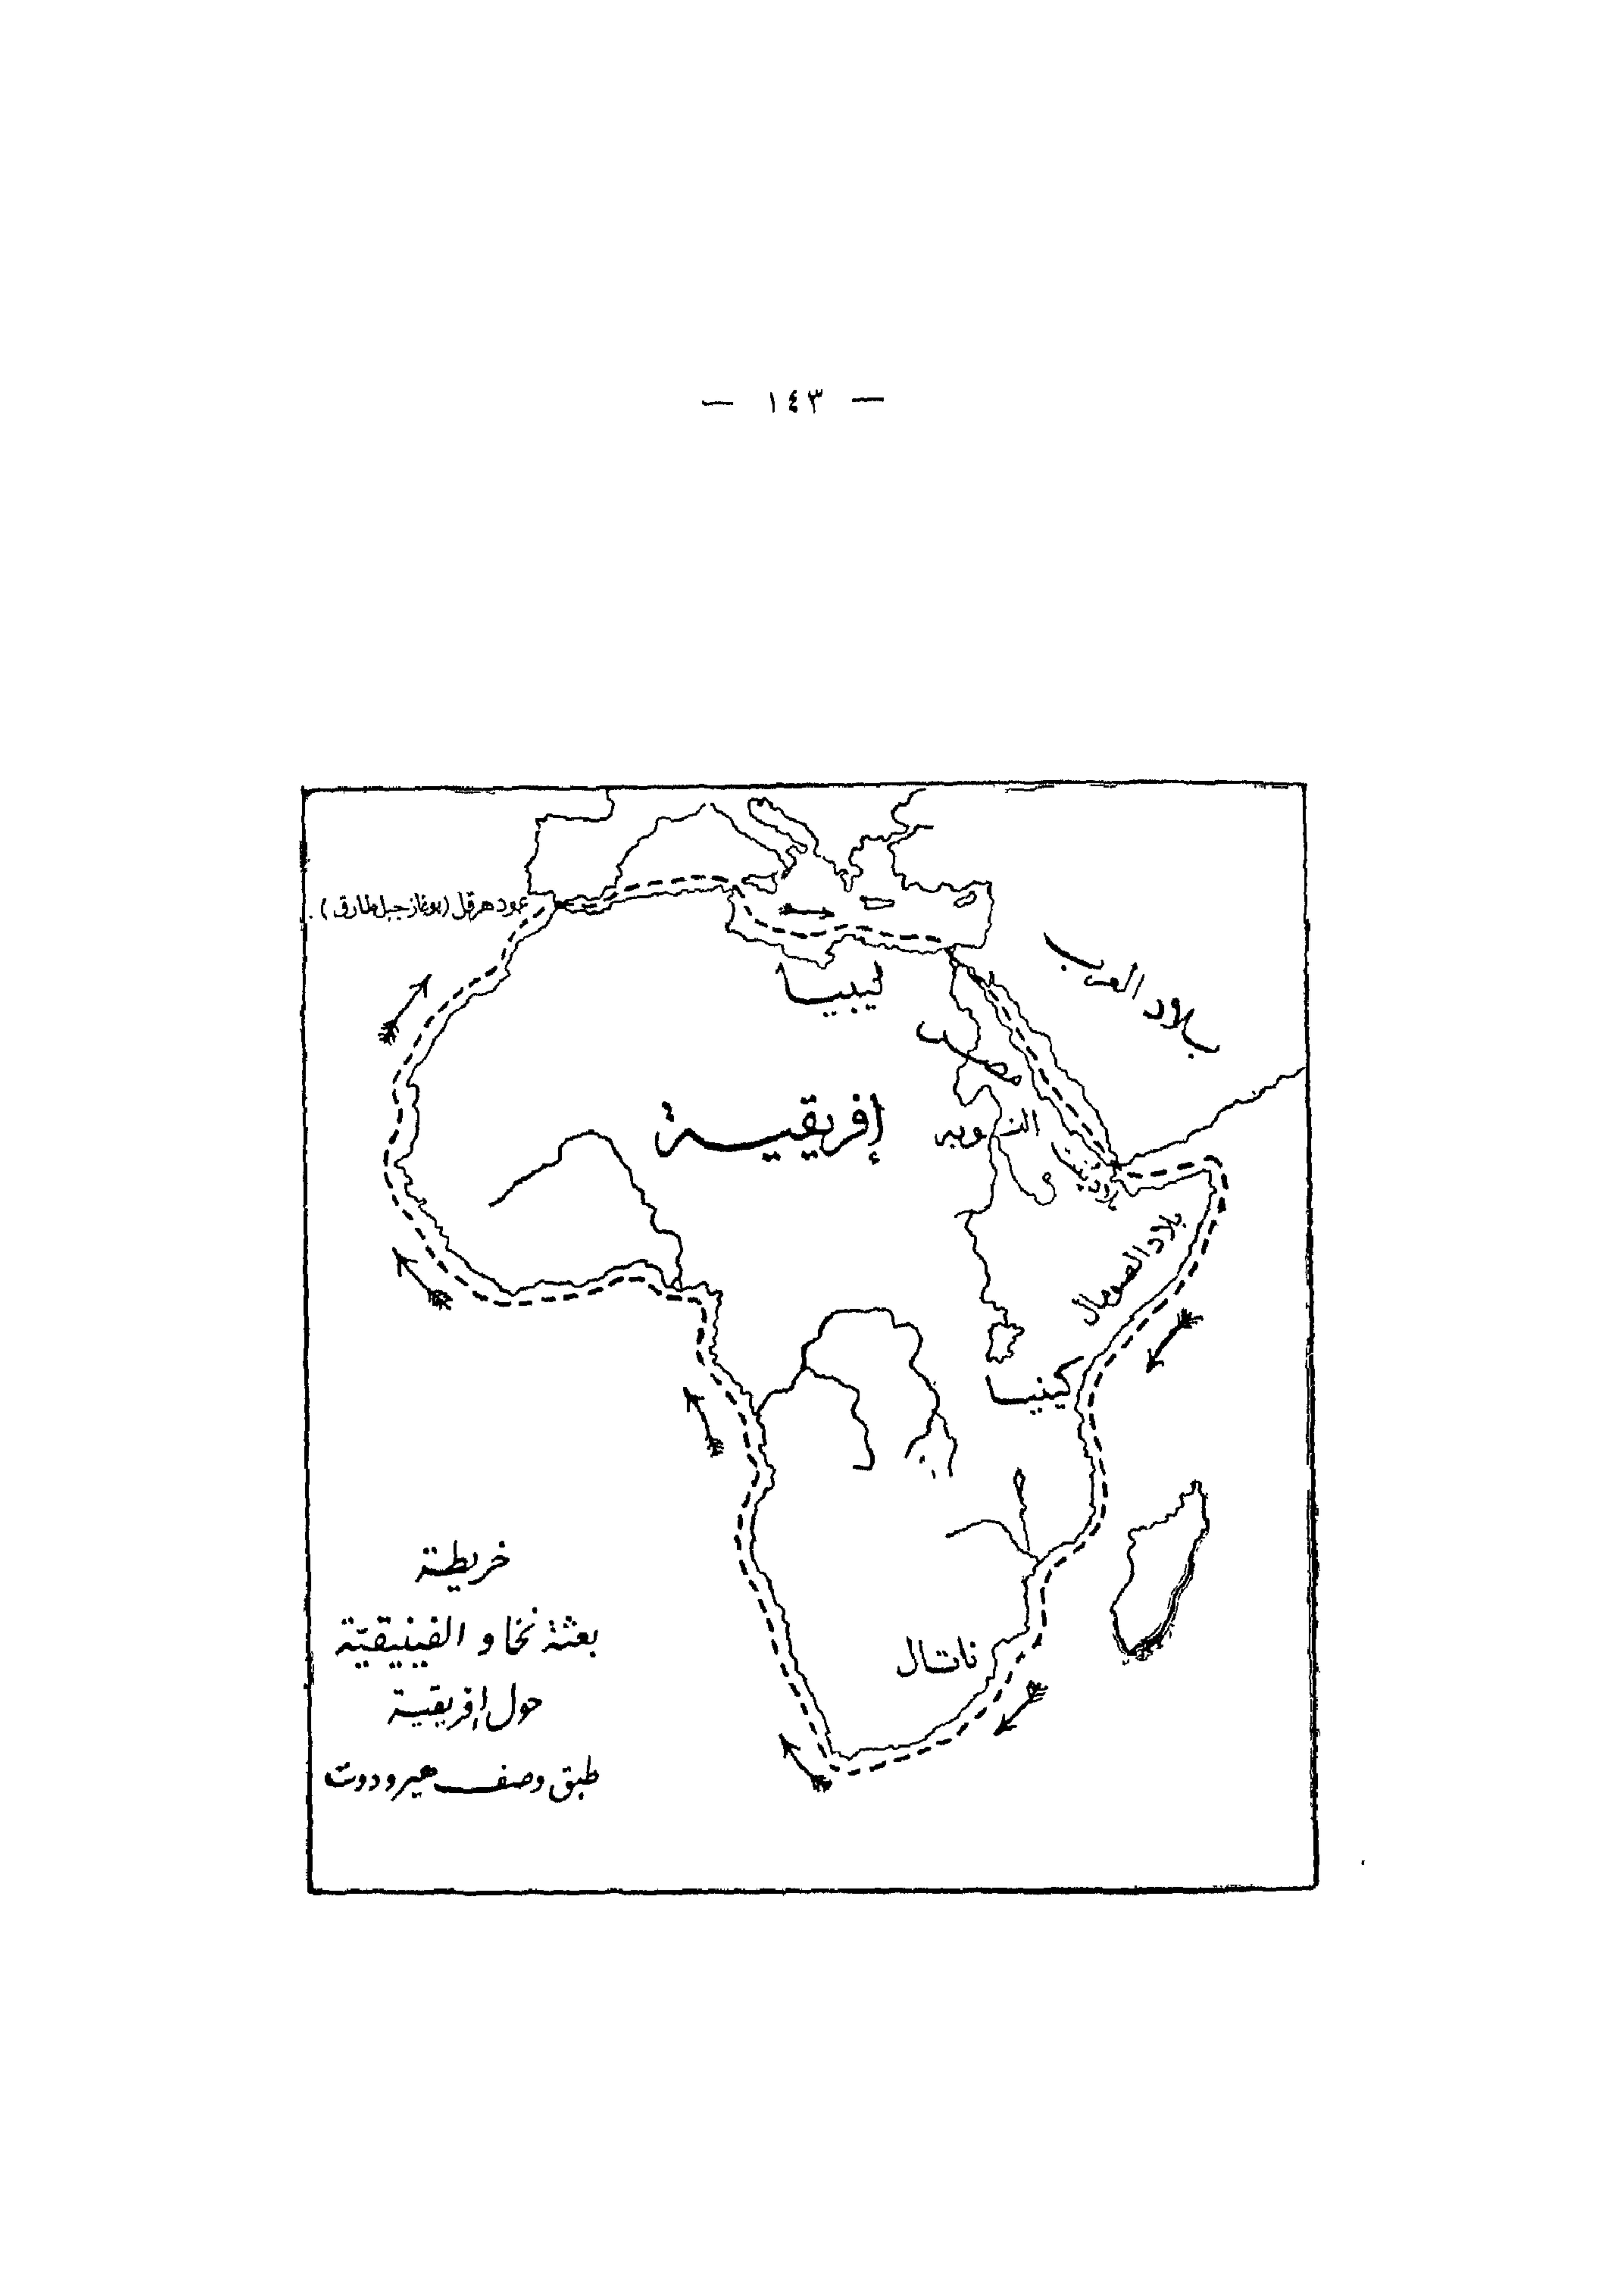 — ١٤٣ —
عمود هرقل (بوغاز جبل طارق)
ليبيا
بلاد العرب
مصر
إفريقية
النوبه
بلاد
بلاد الصومال
كينيا
ناتال
خريطة
بعثة نخاو الفينيقية
حول إفريقية
طبق وصف هيرودوت